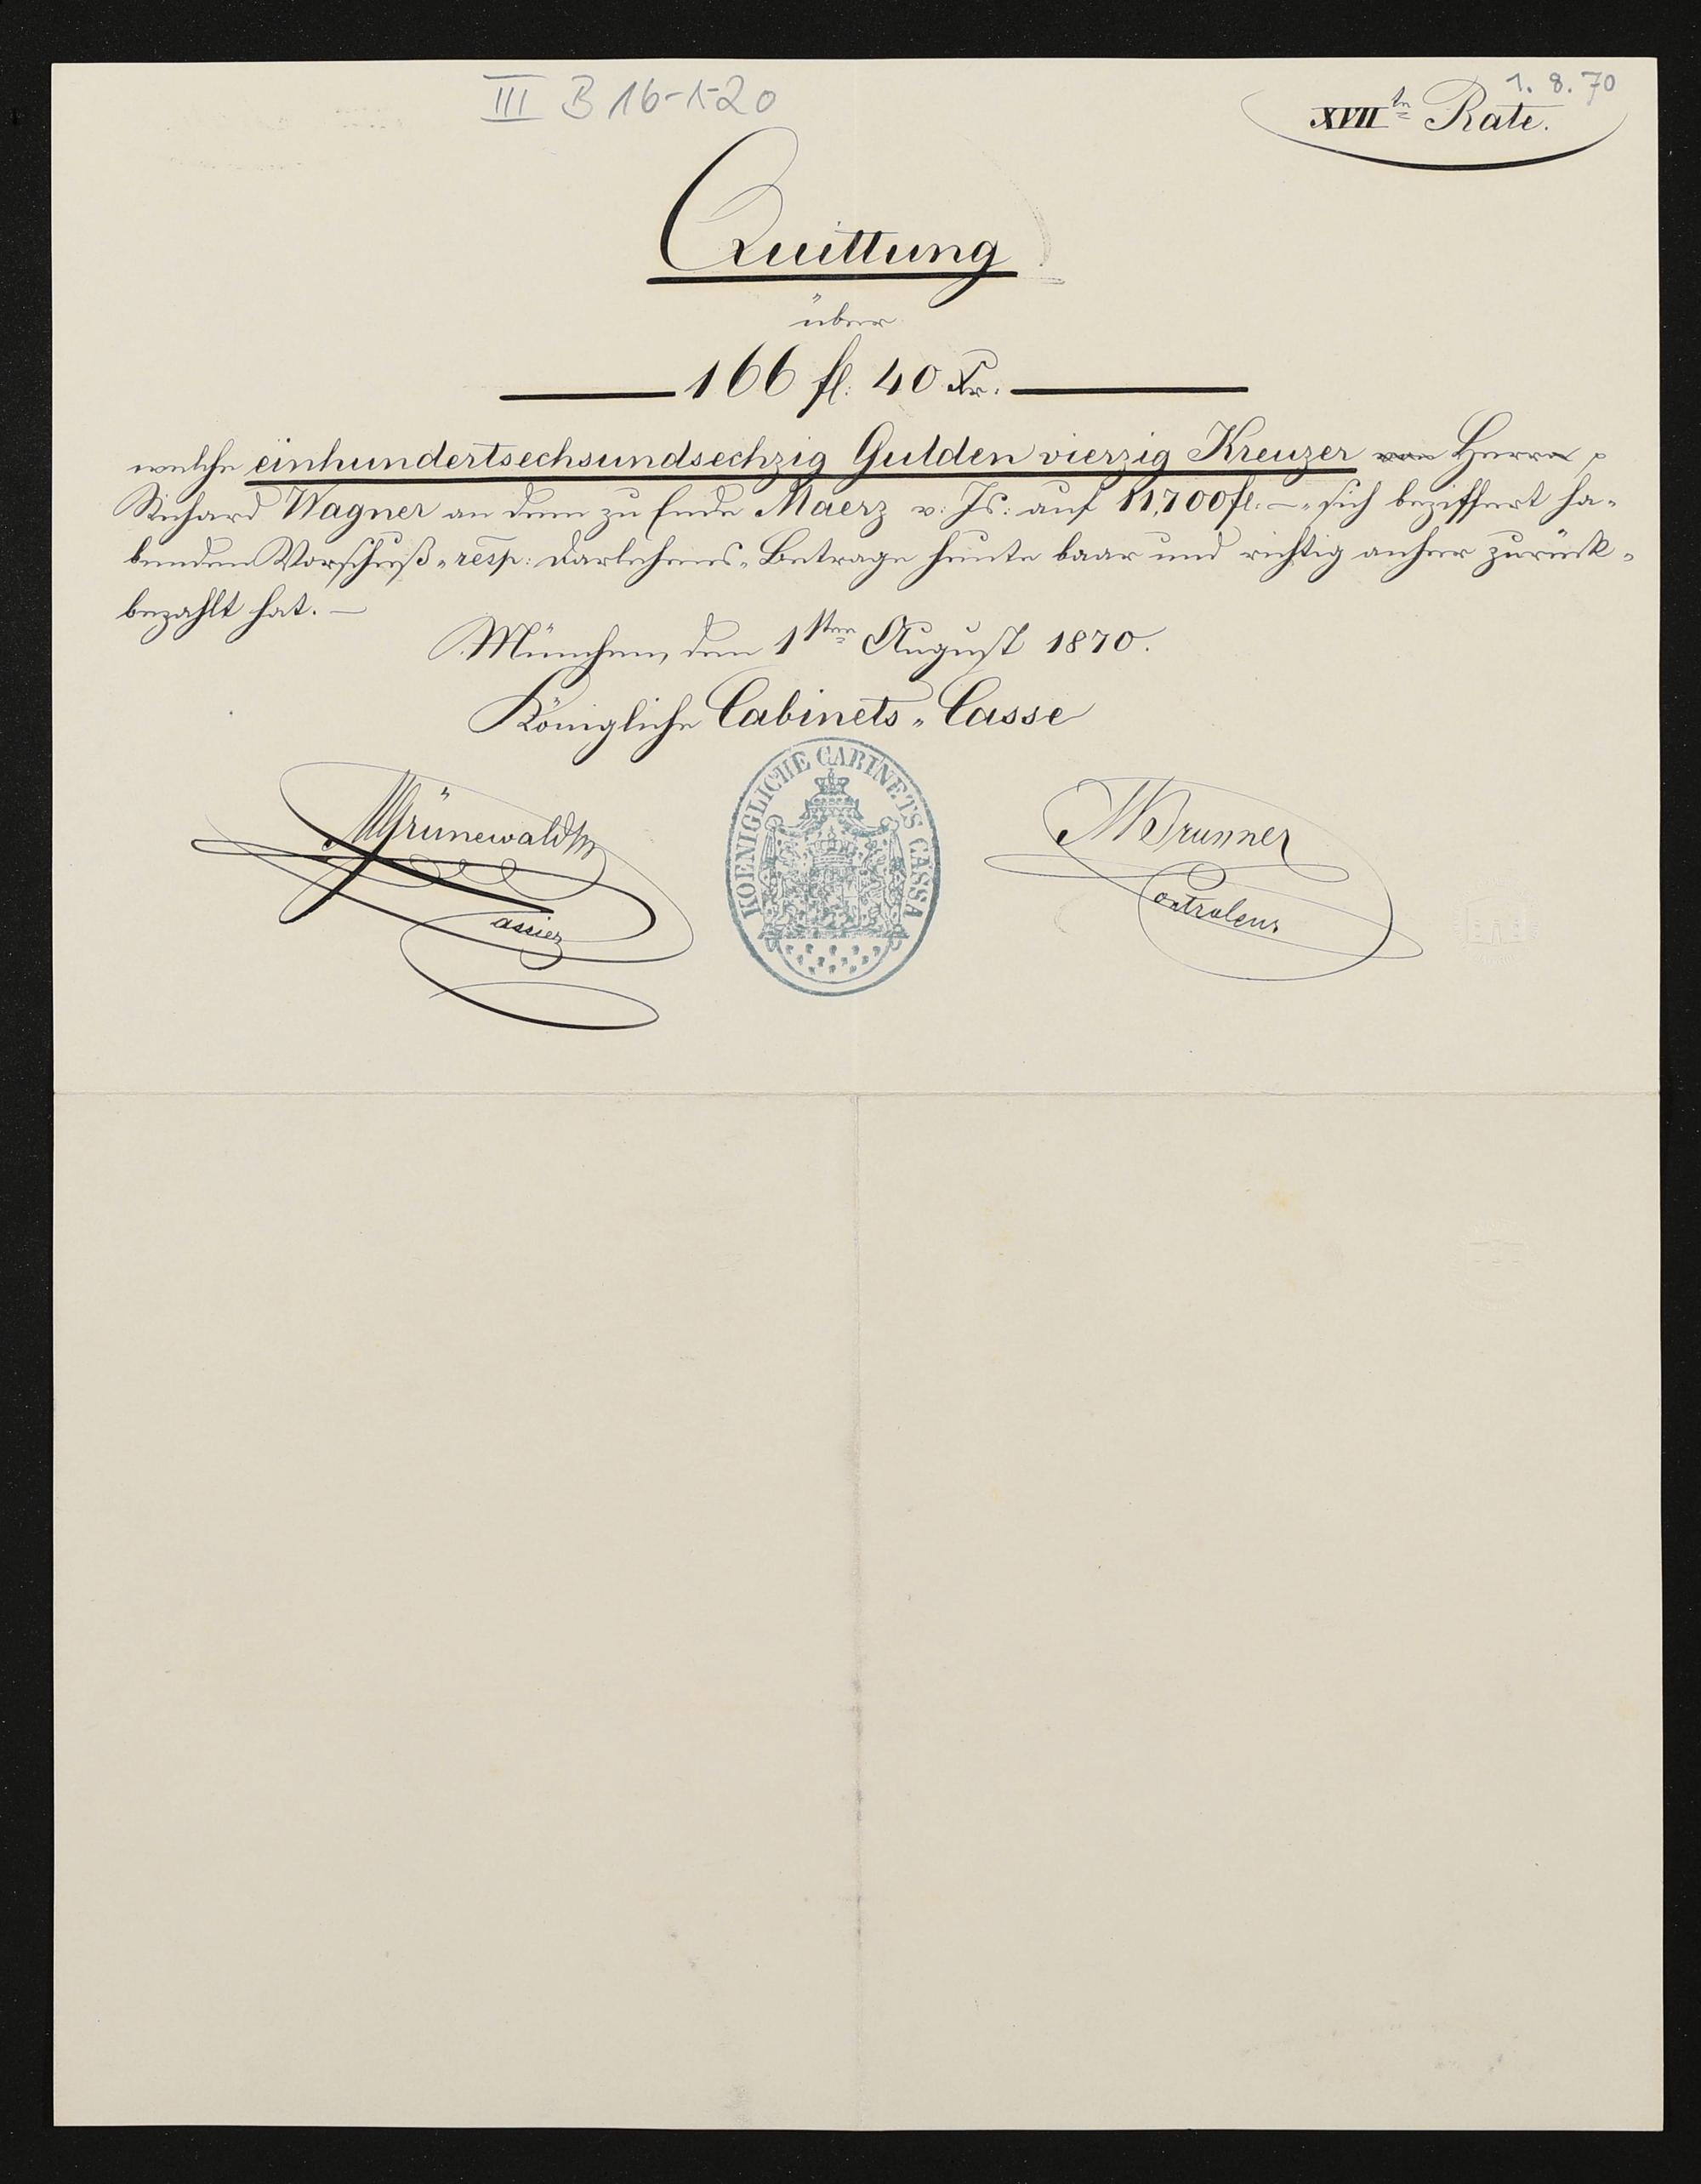 III B 16-1-20
1. 8. 70
XVII te Rate.
Quittung
über
166 fl. 40 Kr.
welche einhundertsechsundsechzig Gulden vierzig Kreuzer Herr
Richard Wagner an dem zu Ende Maerz v: Js: auf 11,700 fl: — sich beziffert ha-
benden Vorschuß- resp: Darlehens-Betrage heute baar und richtig anher zurück-
bezahlt hat. —
München, den 1sten August 1870.
Königliche Cabinets-Casse
KOENIGLICHE CABINETS CASSA
Grünewald
Cassier
Brunner
Controleur